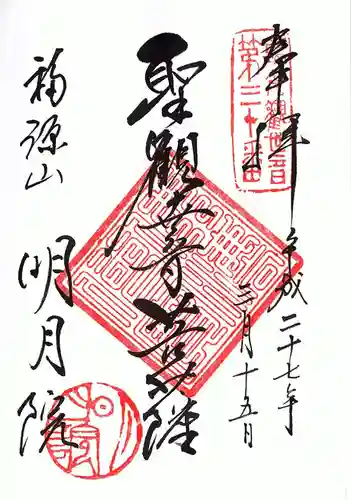 奉拝
平成二十七年
三月十五日
第三十番
聖観世音菩薩
福源山
明月院